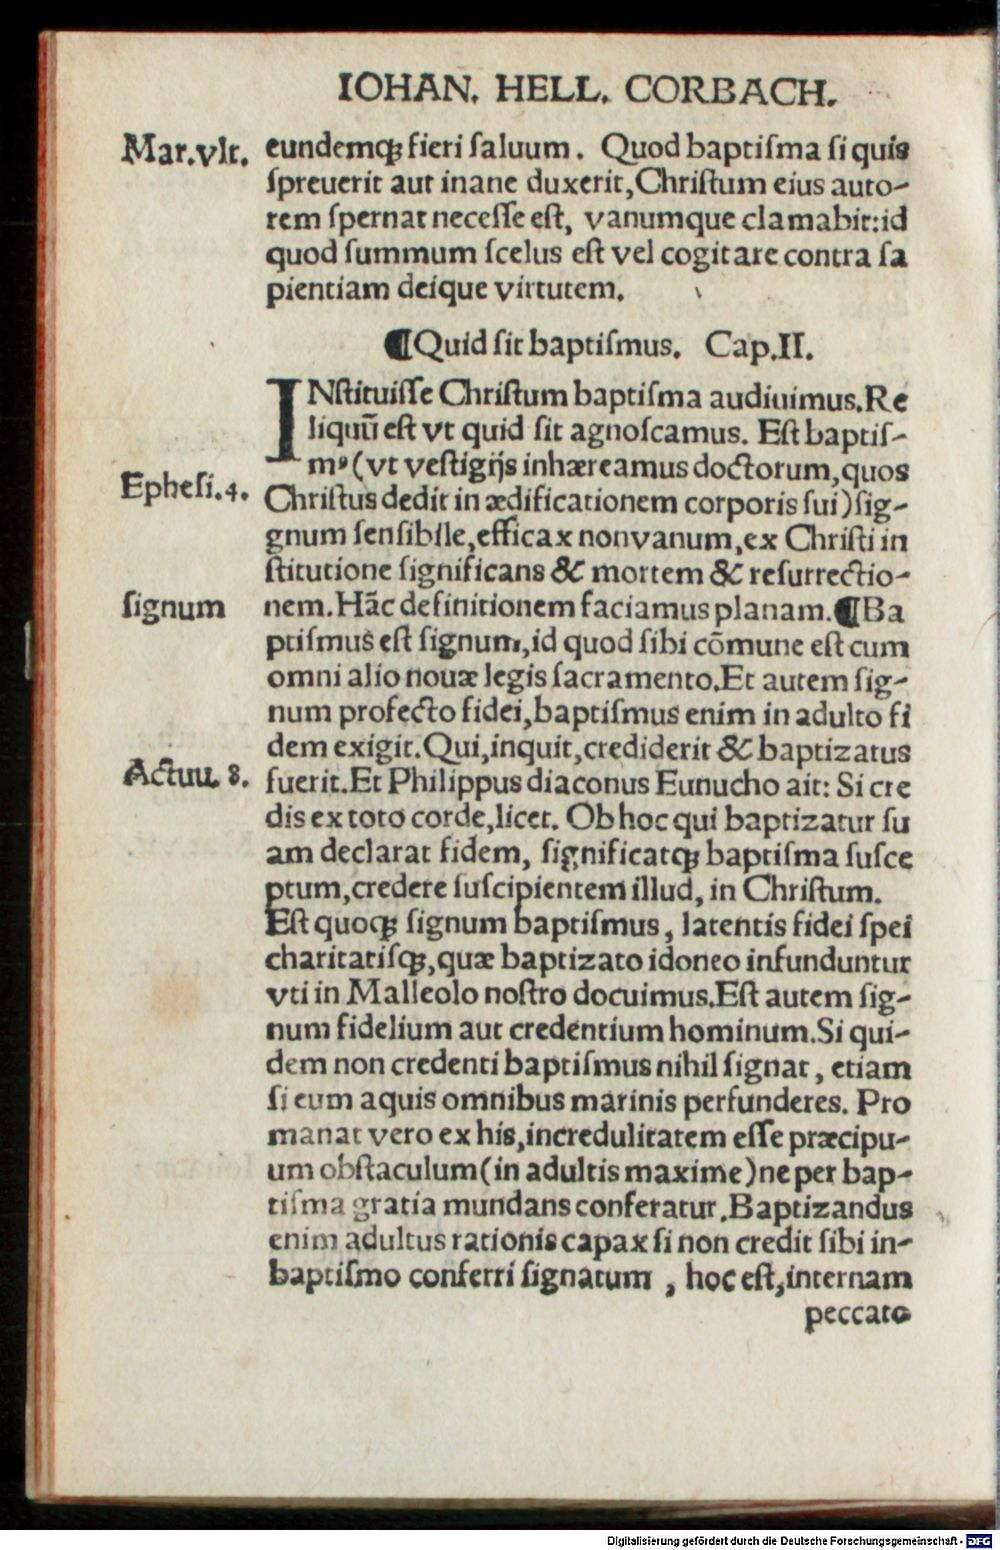 IOHAN. HELL. CORBACH.
Mar.vlt.
eundemqꝫ fieri ſaluum. Quod baptiſma ſi quis
ſpreuerit aut inane duxerit, Chriſtum eius auto-
rem ſpernat neceſſe eſt, vanumque clamabit: id
quod ſummum ſcelus eſt vel cogitare contra ſa
pientiam deique virtutem.
¶Quid ſit baptiſmus. Cap.II.
INſtituiſſe Chriſtum baptiſma audiuimus. Re
liquũ eſt vt quid ſit agnoſcamus. Eſt baptiſ-
mꝰ (vt veſtigijs inhæreamus doctorum, quos
Epheſi.4.
Chriſtus dedit in ædificationem corporis ſui) ſig-
gnum ſenſibile, efficax non vanum, ex Chriſti in
ſtitutione ſignificans & mortem & reſurrectio-
ſignum
nem. Hãc definitionem faciamus planam. ¶Ba
ptiſmus eſt ſignum, id quod ſibi cõmune eſt cum
omni alio nouæ legis ſacramento. Et autem ſig-
num profecto fidei, baptiſmus enim in adulto fi
dem exigit. Qui, inquit, crediderit & baptizatus
Actuu. 8.
fuerit. Et Philippus diaconus Eunucho ait: Si cre
dis ex toto corde, licet. Ob hoc qui baptizatur ſu
am declarat fidem, ſignificatqꝫ baptiſma ſuſce
ptum, credere ſuſcipientem illud, in Chriſtum.
Eſt quoqꝫ ſignum baptiſmus, latentis fidei ſpei
charitatiſqꝫ, quæ baptizato idoneo infunduntur
vti in Malleolo noſtro docuimus. Eſt autem ſig-
num fidelium aut credentium hominum. Si qui-
dem non credenti baptiſmus nihil ſignat, etiam
ſi eum aquis omnibus marinis perfunderes. Pro
manat vero ex his, incredulitatem eſſe præcipu-
um obſtaculum (in adultis maxime) ne per bap-
tiſma gratia mundans conferatur. Baptizandus
enim adultus rationis capax ſi non credit ſibi in-
baptiſmo conferri ſignatum, hoc eſt, internam
peccato
Digitalisierung gefördert durch die Deutsche Forschungsgemeinschaft - DFG